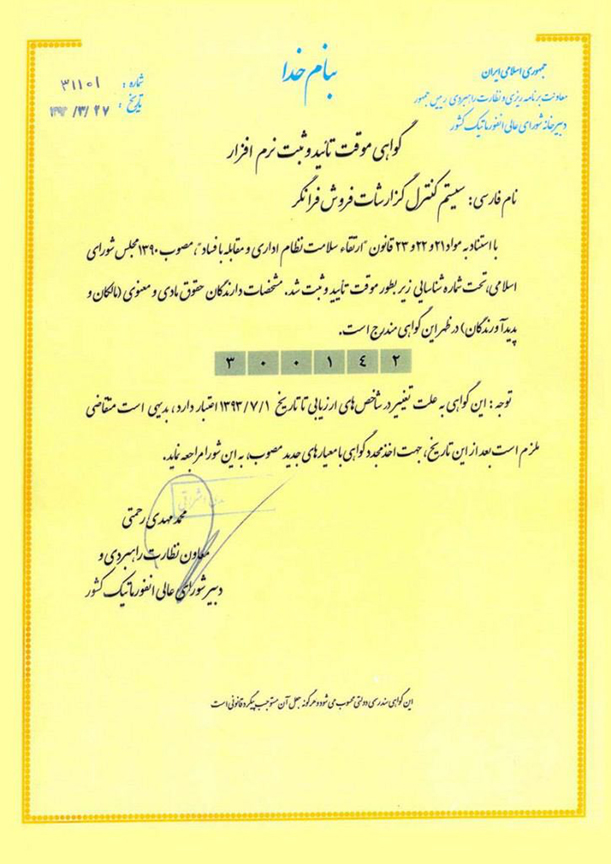 بنام خدا
جمهوری اسلامی ایران
معاونت برنامه ریزی و نظارت راهبردی رییس جمهور
دبیرخانه شورای عالی انفورماتیک کشور
شماره : ۳۱۱۰۱
تاریخ : ۱۳۹۳/۳/۲۷
گواهی موقت تائید و ثبت نرم افزار
نام فارسی: سیستم کنترل گزارشات فروش فرانگر
با استناد به مواد ۲۱ و ۲۲ و ۲۳ قانون "ارتقاء سلامت نظام اداری و مقابله با فساد"، مصوب ۱۳۹۰ مجلس شورای
اسلامی، تحت شماره شناسایی زیر بطور موقت تأیید و ثبت شد. مشخصات دارندگان حقوق مادی و معنوی (مالکان و
پدیدآورندگان) در ظهر این گواهی مندرج است.
۳ ۰ ۰ ۱ ٤ ۲
توجه : این گواهی به علت تغییر در شاخص های ارزیابی تا تاریخ ۱۳۹۳/۷/۱ اعتبار دارد، بدیهی است متقاضی
ملزم است بعد از این تاریخ، جهت اخذ مجدد گواهی با معیارهای جدید مصوب، به این شورا مراجعه نماید.
محمد مهدی رحمتی
معاون نظارت راهبردی و
دبیر شورای عالی انفورماتیک کشور
این گواهی سند رسمی دولتی محسوب می شود و هرگونه جعل آن مستوجب پیگرد قانونی است